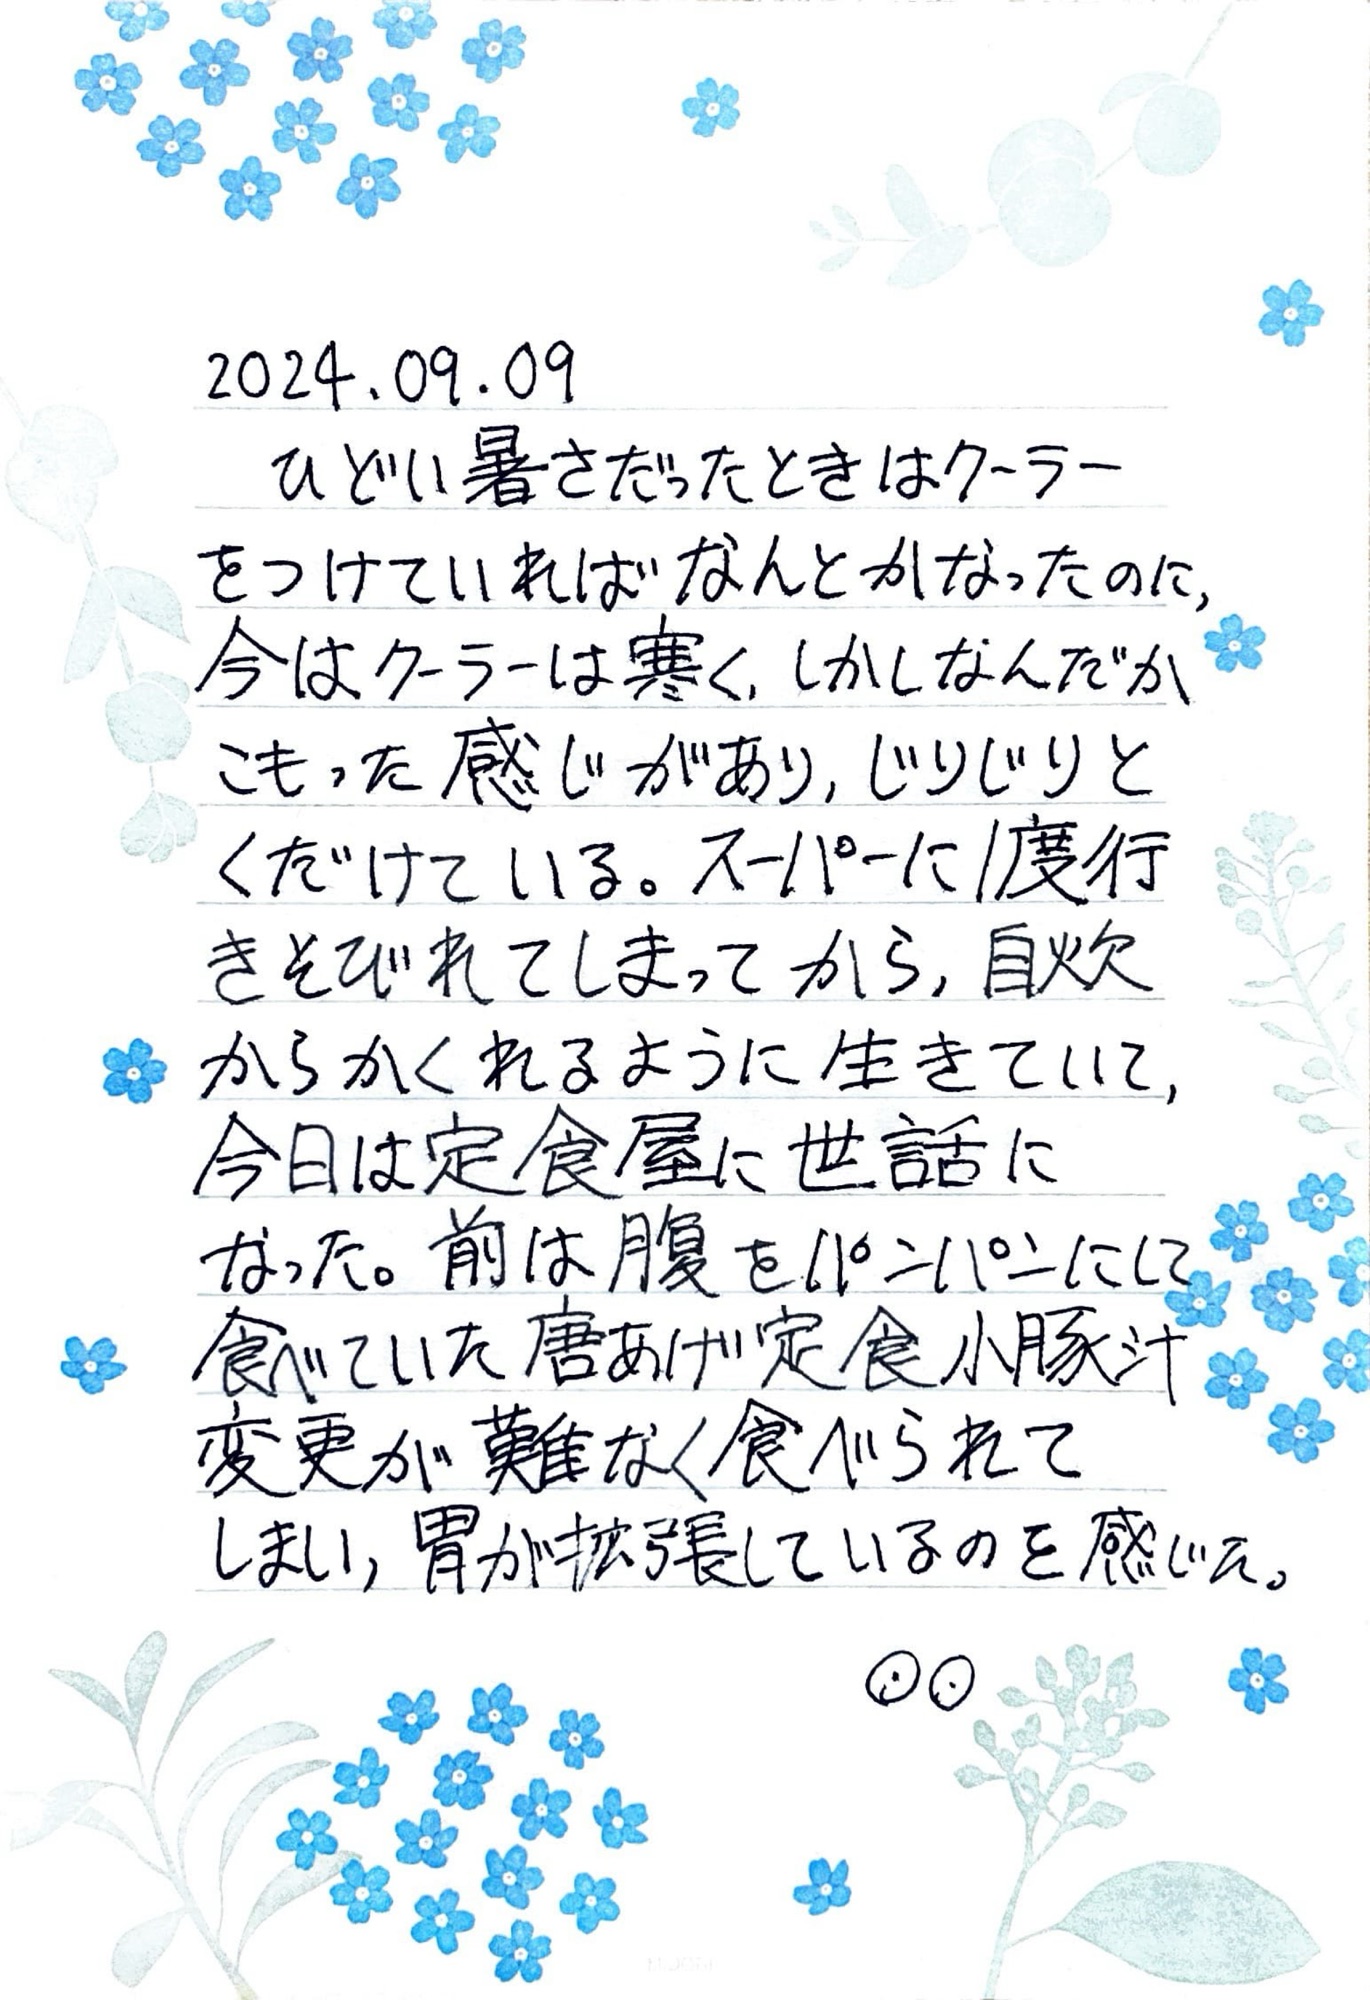 2024.09.09
ひどい暑さだったときはクーラー
をつけていればなんとかなったのに,
今はクーラーは寒く, しかしなんだか
こもった感じがあり, じりじりと
くだけている。スーパーに1度行
きそびれてしまってから, 自炊
からかくれるように生きていて,
今日は定食屋に世話に
なった。前は腹をパンパンにして
食べていた唐あげ定食小豚汁
変更が難なく食べられて
しまい, 胃が拡張しているのを感じた。